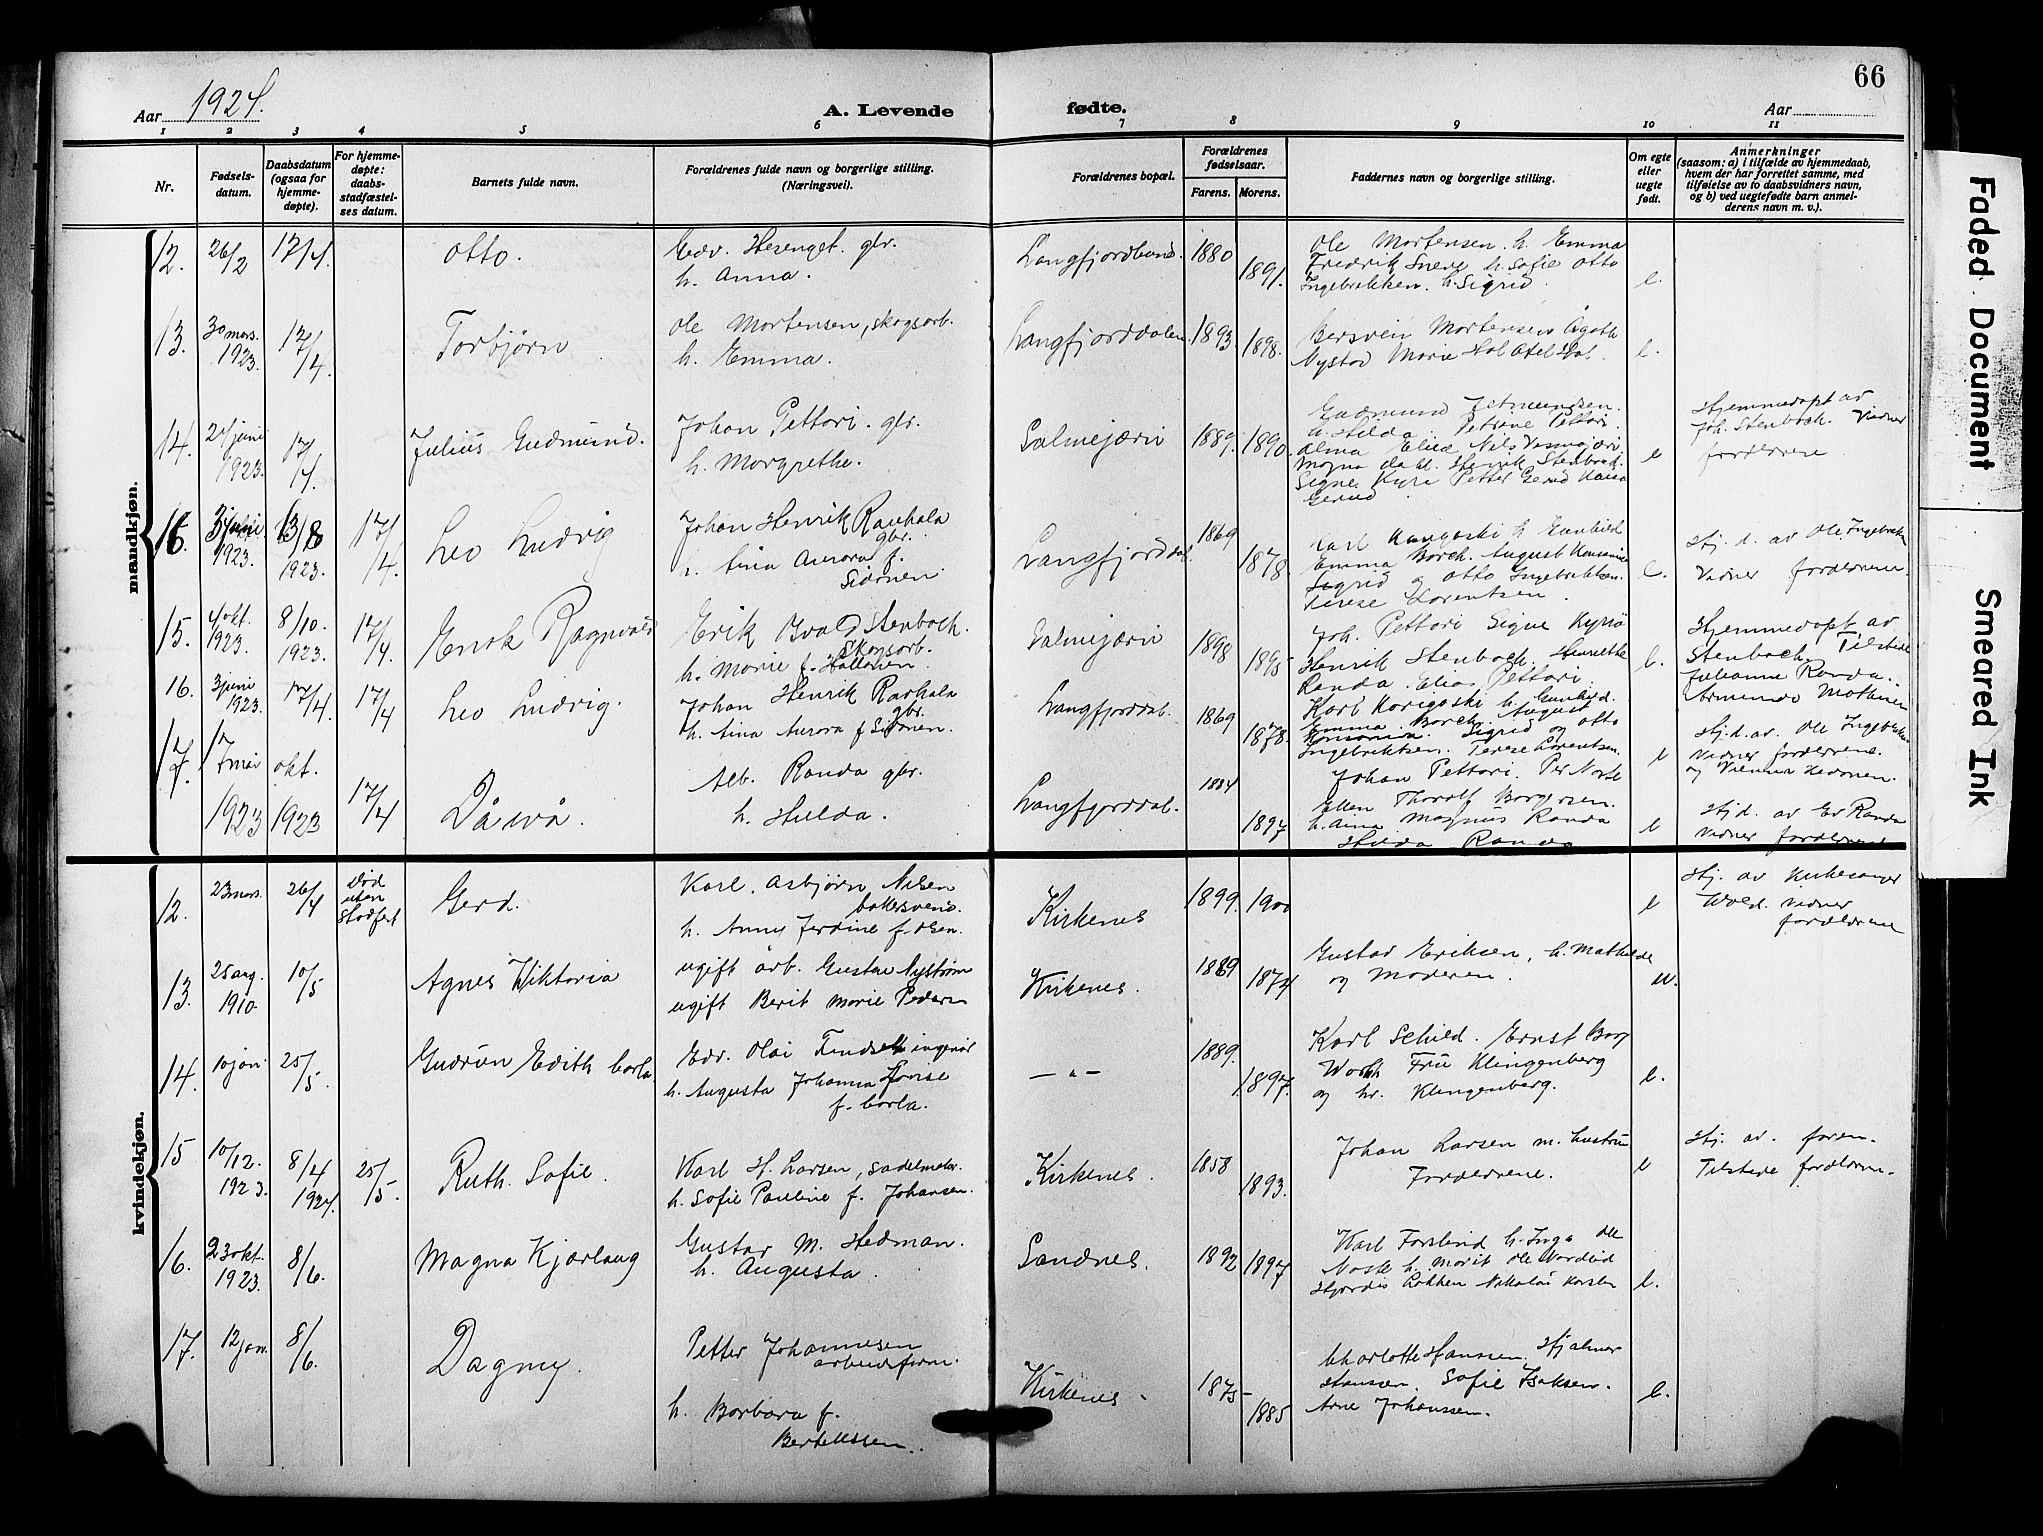 66
Aar 1924.
A. Levende
fødte.
Aar
1 2 3 4 5 6 7 8 9 10 11
Nr.
Fødsels-
datum.
Daabsdatum
(ogsaa for
hjemme-
døpte).
For hjemme-
døpte:
daabs-
stadfæstel-
ses datum.
Barnets fulde navn.
Forældrenes fulde navn og borgerlige stilling.
(Næringsvei).
Forældrenes bopæl.
Forældrenes
fødselsaar.
Farens. Morens.
Faddernes navn og borgerlige stilling.
Om egte
eller
uegte
født.
Anmerkninger
(saasom: a) i tilfælde av hjemmedaab,
hvem der har forrettet samme, med
tilføielse av to daabsvidners navn,
og b) ved uegtefødte barn anmel-
derens navn m. v.).
mandkjøn.
12. 26/2 17/4. Otto. Edv. gbr. 1880 Ole Mortensen. h. Emma
h. Anna. 1891. Fredrik h. Sofie Otto
Ingebrikken. h. Sigrid. e.
13. 30 mars. 1923. 17/4. Torbjørn Ole Mortensen, skogsarb. Langfjorddalen 1893 Mortensen Agath
h. Emma. 1898. Nystad Marie e.
14. 24 juni 1923. 17/4. Julius Gudmund. Johan Pettari. gbr. Salmejærvi 1889. 1890. Gudmund
h. Margrethe. h. Hilda. Petrine Pettari.
Alma Nils
Magna Dahl. Henrik Stenbock.
Signe Petter
e
Hjemmedøpt av
Joh. Stenbock. Vidner
forældrene
16. 3 juni 1923. 13/8 1923. 17/4. Leo Ludvig Johan Henrik Rauhala
gbr.
h. Aina Aurora f.
Sidonen
Langfjorddal. 1869 1878.
Karl h. Gunhild
Emma Borch. August
Sigrid og Otto Ingebrikken.
Terese Lorentsen.
e.
Hj. d. av Ole
Vidner forældrene.
15. 4 okt. 1923. 8/10. 1923. 17/4. Enok Ragnvald Erik Stenbock.
skogsarb.
h. Marie f.
Salmejærvi 1898 1895
Joh. Pettari Signe
Henrik Stenbock.
Randa. Elias Pettari.
e.
Hjemmedøpt av
Stenbock. Tilstede
Julianne Randa.
16. 3 juni 1923. 17/4. 17/4 Leo Ludvig. Johan Henrik Rauhala
gbr.
h. Aina Aurora f Sidonen.
Langfjorddal. 1869 1878.
Karl h. Gunhild.
Emma Borch. August
Sigrid og Otto
Ingebrikktsen. Terese Lorentsen.
e
Hj. d. av. Ole
Vidner forældrene.
og
17. 17 mai 1923 okt. 1923 17/4 Alb. Randa gbr.
h. Hilda.
Langfjorddal. 1884 1897
Johan Pettari. Per
Ellen Thoralf Borgersen.
h. Aina Magnus Randa
Hilda Randa
e
Hj d. av Randa
Vidner forældrene
kvindekjøn.
12. 23 mars. 26/4 Død
uten
Stadfest
Gerd. Karl. Asbjørn Nilsen
bakersvend.
h. Anny f. Olsen.
Kirkenes 1899. 1900 e
Hj. av Kirkesanger
Vidner
forældrene
13. 25 aug. 1910. 10/5 Agnes Viktoria ugift arb. Gustav Nystrøm
ugift Berit Marie
Kirkenes. 1889 1874
Gustav Eriksen, h. Mathilde
og Moderen.
u.
14. 10 jan 25/5. Gudrun Edith Carla. Edv. Olai ingeniør
h. Augusta Johanna
f. Carla.
— " — 1889. 1897.
Karl Schild. Ernst
Fru Klingenberg
og hr. Klingenberg.
e.
15 10/12. 1923. 8/4 1924. 25/5. Ruth. Sofie. Karl H. Larsen, sadelmaker.
h. Sofie Pauline f. Johansen.
Kirkenes. 1858 1893.
Johan Larsen m. hustru
Forældrene.
e
Hj. av. faren.
Tilstede forældrene.
16. 23 okt. 1923. 8/6. Magna Kjærlaug Gustav M. Hedman.
h. Augusta.
Sandnes. 1892 1897
Karl Forslind h. Inga Ole
h. Marit Ole
Hjørdis Nikolai
e.
17. 12 jan. 8/6. Dagny. Petter Johannesen
arbeidsform.
h. Barbara f.
Bertelssen.
Kirkenes. 1875 1885
Charlotte Hanssen. Hjalmar
Hanssen. Sofie Isaksen.
Arne Johanssen.
e.
Faded Document
Smeared Ink